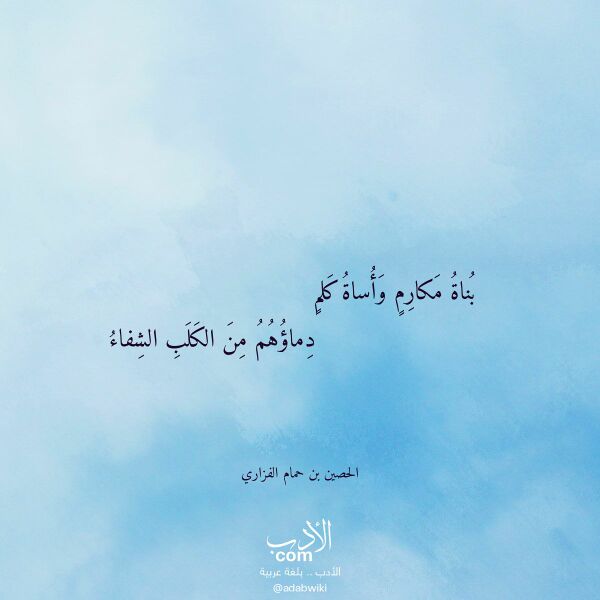 بُناةُ مَكارِمٍ وَأُساةُ كَلمٍ
دِماؤُهُمُ مِنَ الكَلَبِ الشِفاءُ
الحصين بن حمام الفزاري
الأدب
com
الأدب .. بلغة عربية
@adabwiki